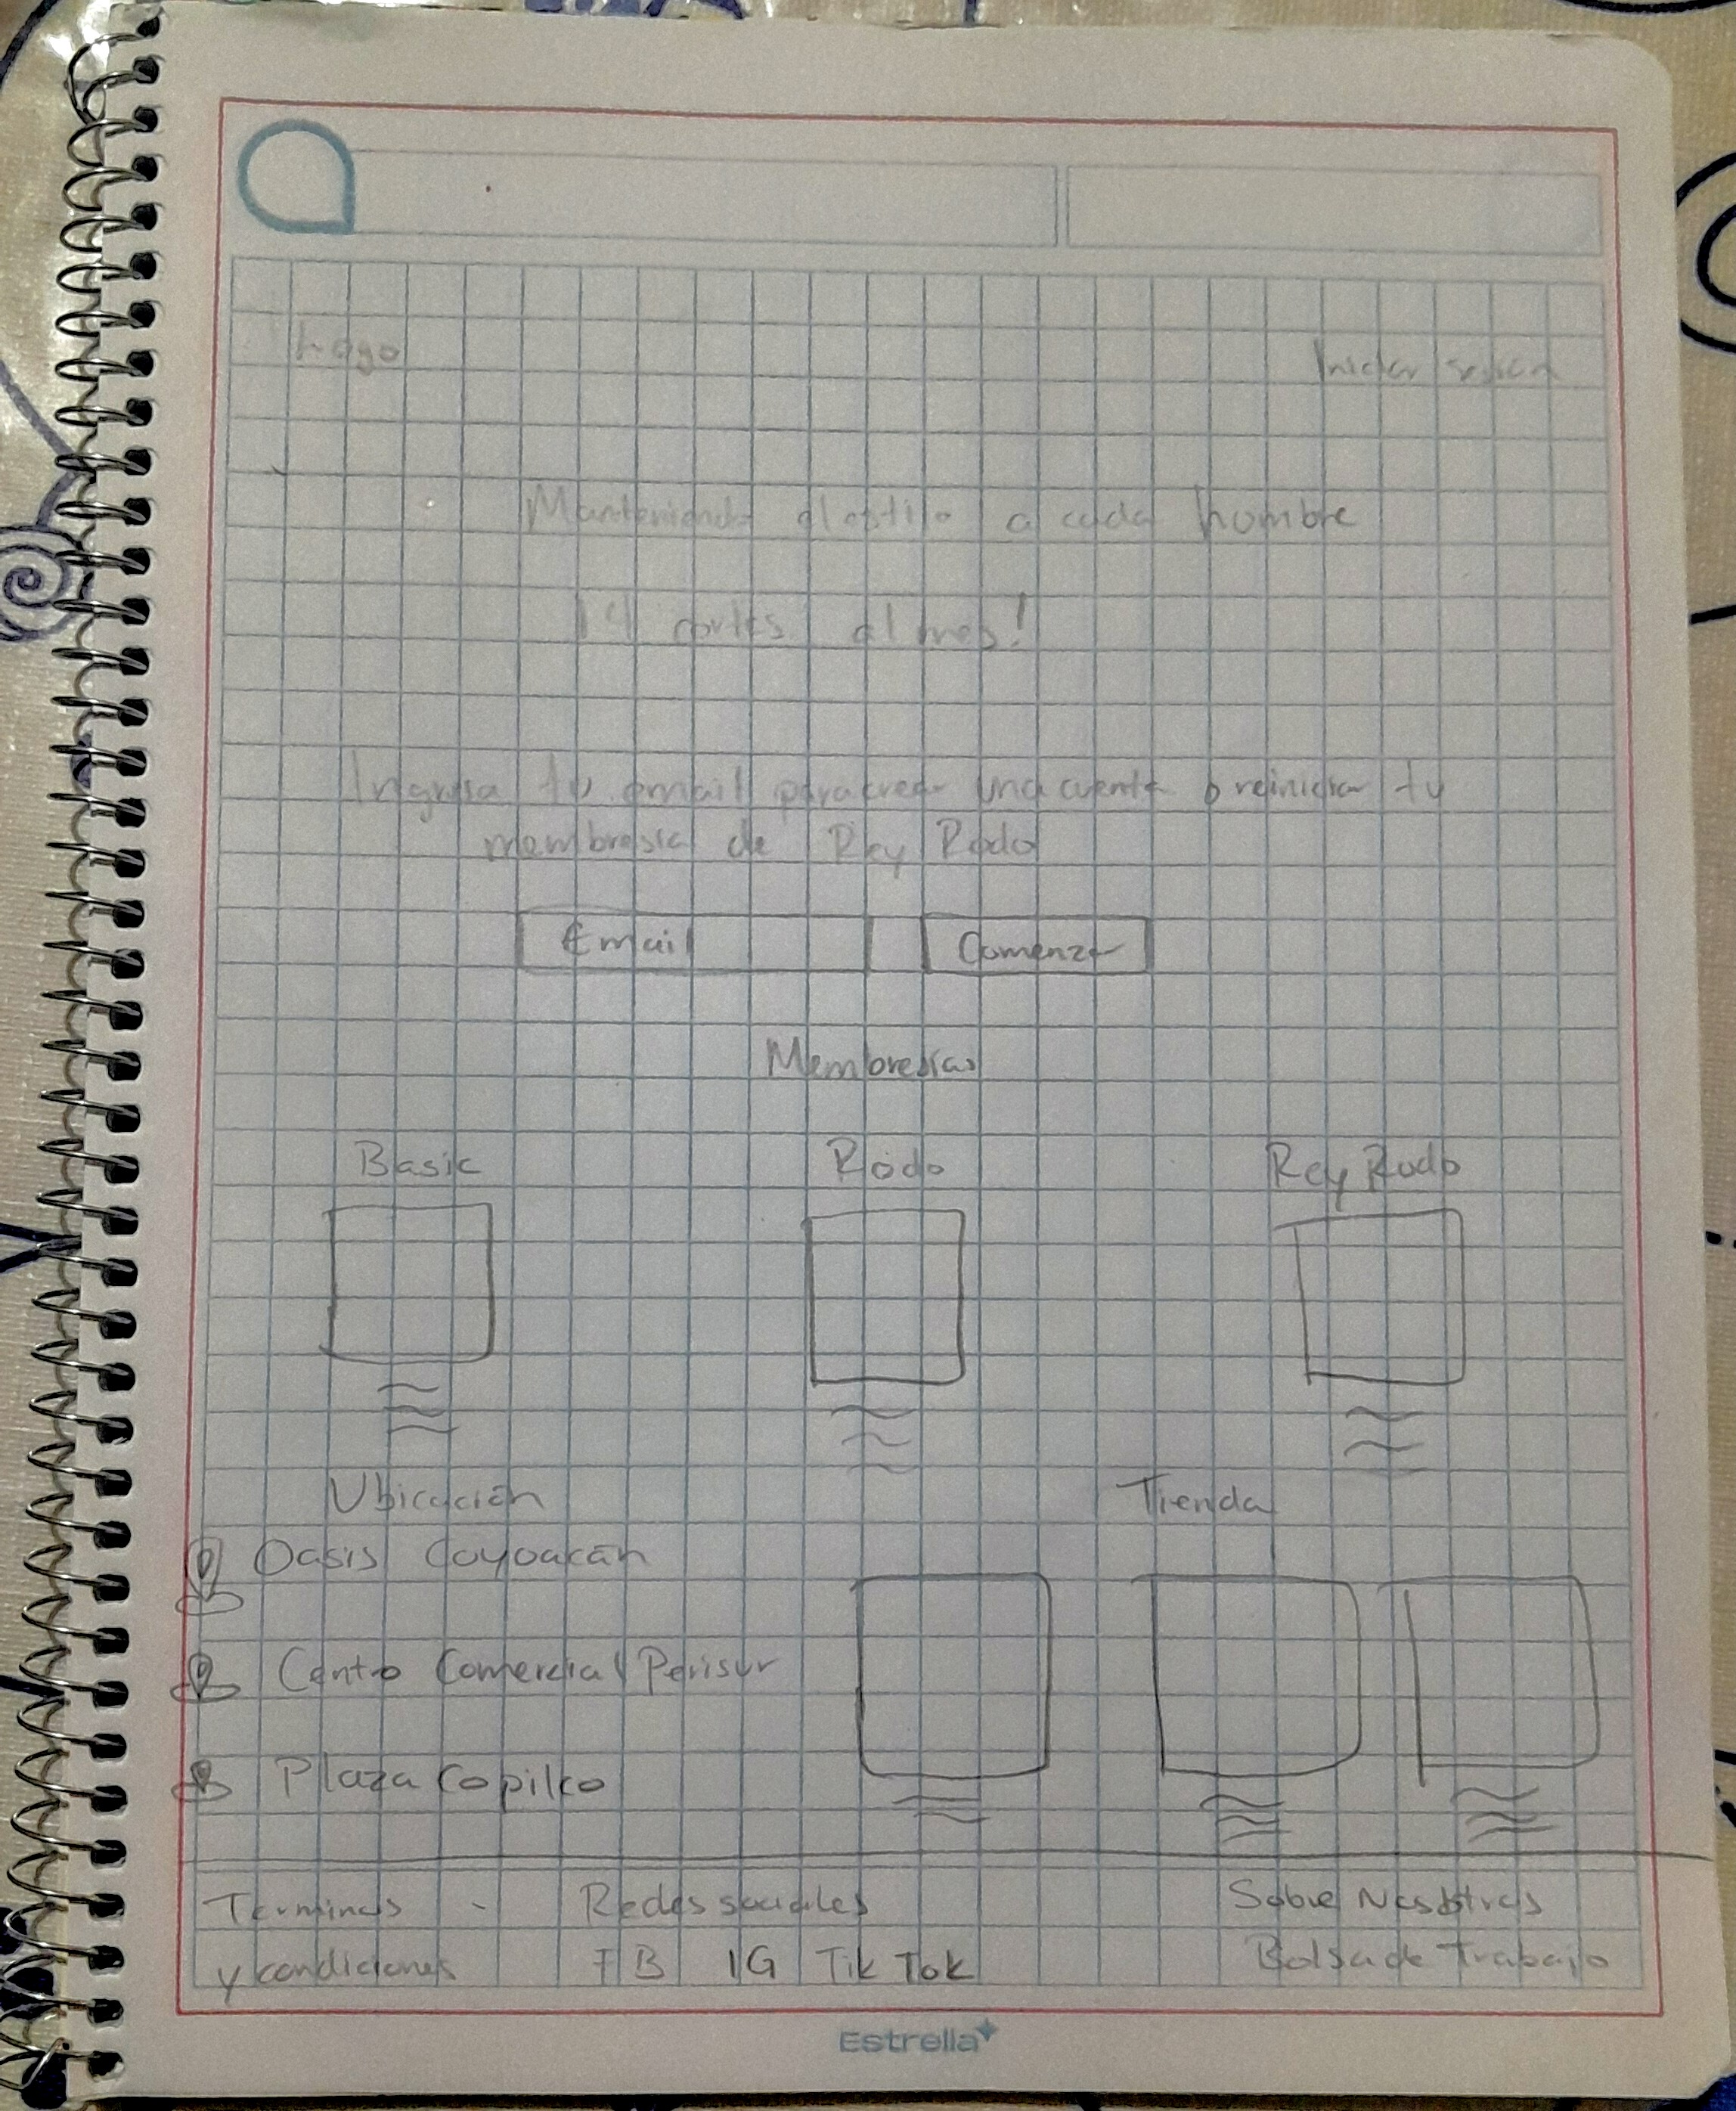 Logo
Iniciar sesión
Manteniendo el estilo a cada hombre
¡4 cortes al mes!
Ingresa tu email para crear una cuenta o reiniciar tu
membresía de Rey Rodo
Email
Comenzar
Membresías
Basic
Rodo
Rey Rodo
Ubicación
Tienda
Oasis Coyoacán
Centro Comercial Perisur
Plaza Copilco
Terminos
y condiciones
Redes sociales
FB IG Tik Tok
Sobre Nosotros
Bolsa de Trabajo
Estrella